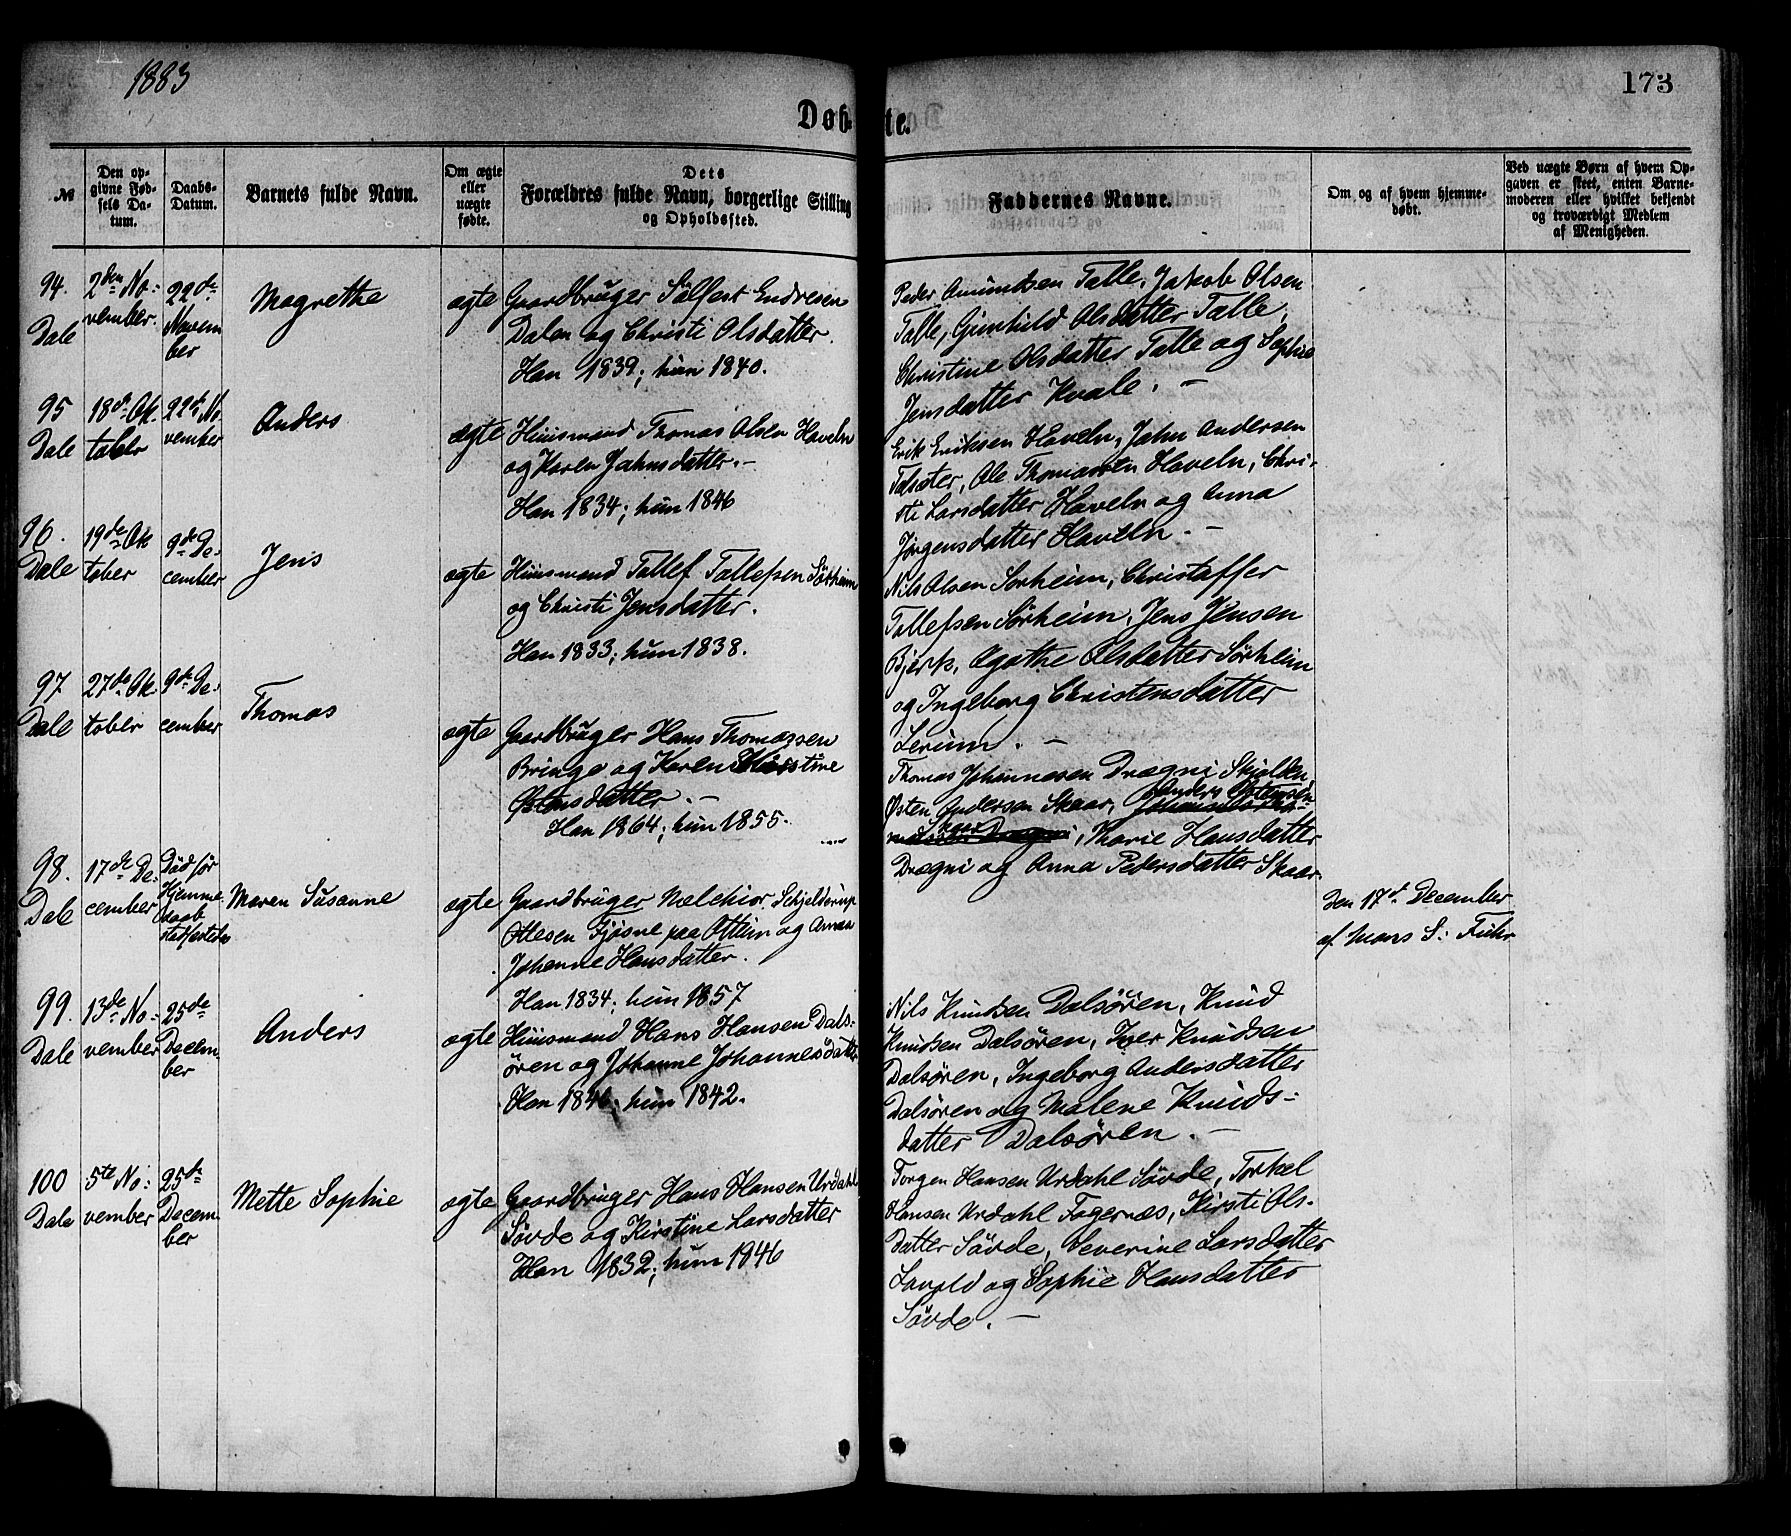 1883
173
Døb-
te.
№
Den op-
givne Fød-
sels Da-
tum.
Daabs-
Datum.
Barnets fulde Navn.
Om ægte
eller
uægte
fødte.
Dets
Forældres fulde Navn, borgerlige Stilling
og Opholdssted.
Faddernes Navne.
Om og af hvem hjemme-
døbt.
Ved uægte Børn af hvem Op-
gaven er skeet, enten Barne-
moderen eller hvilket bekjendt
og troværdigt Medlem
af Menigheden.
94.
Dale
2den No-
vember.
22de
Novem
ber
Magrethe
ægte
Gaardbruger Sølfest Endresen
Dalen og Christi Olsdatter.
Han 1839; hun 1840.
Peder Amundsen Talle, Jakob Olsen
Talle, Gunhild Olsdatter Talle,
Christine Olsdatter Talle og Sophie
Jensdatter Kvale. —
95
Dale
18de Ok-
tober
22de No
vember
Anders
ægte
Huusmand Thomas Olsen Haveln
og Karen Jahnsdatter. —
Han 1834; hun 1846
Erik Eriksen Haveln, Jahn Andersen
Talsæter, Ole Thomassen Haveln, Chri-
sti Larsdatter Haveln og Anna
Jørgensdatter Haveln. —
96.
Dale
19de Ok
tober
9de De-
cember
Jens
ægte
Huusmand Tallef Tallefsen Sørheim
og Christi Jensdatter.
Han 1833; hun 1838.
Nils Olsen Sørheim, Christaffer
Tallefsen Sørheim, Jens Jensen
Bjerk, Agathe Olsdatter Sørheim
og Ingeborg Christensdatter
Lerum. —
97
Dale
27de Ok-
tober
9de De-
cember
Thomas
ægte
Gaardbruger Hans Thomassen
Bringe og Karen Kirstine
Østensdatter. —
Han 1864; hun 1855.
Thomas Johannesen Drægni Skjolden,
Østen Andersen Skaar, Anders Østensen
Skaar, Marie Hansdatter
Drægni og Anna Pedersdatter Skaar.
98.
Dale
17de De-
cember
Død før
Hjemme
daab
stadfæstedes
Maren Susanne
ægte
Gaardbruger Melchior Schjelderup
Ottesen Fjøsne paa Ottum og Anna
Johanne Hansdatter.
Han 1834; hun 1857
Den 17de December
af Mons S. Fuhr
99.
Dale
13de No-
vember
25de
Decem-
ber
Anders
ægte
Huusmand Hans Hansen Dals-
øren og Johanne Johannesdatter
Han 1846; hun 1842.
Nils Knudsen Dalsøren, Knud
Knudsen Dalsøren, Iver Knudsen
Dalsøren, Ingeborg Andersdatter
Dalsøren og Malene Knuds-
datter Dalsøren. —
100
Dale
5te No-
vember
25de
Decem-
ber
Mette Sophie
ægte
Gaardbruger Hans Hansen Urdahl
Søvde og Kirstine Larsdatter
Han 1832; hun 1846
Torgen Hansen Urdahl Søvde, Torkel
Hansen Urdahl Fagernæs, Kirsti Ols-
datter Søvde, Severine Larsdatter
og Sophie Hansdatter
Søvde. —